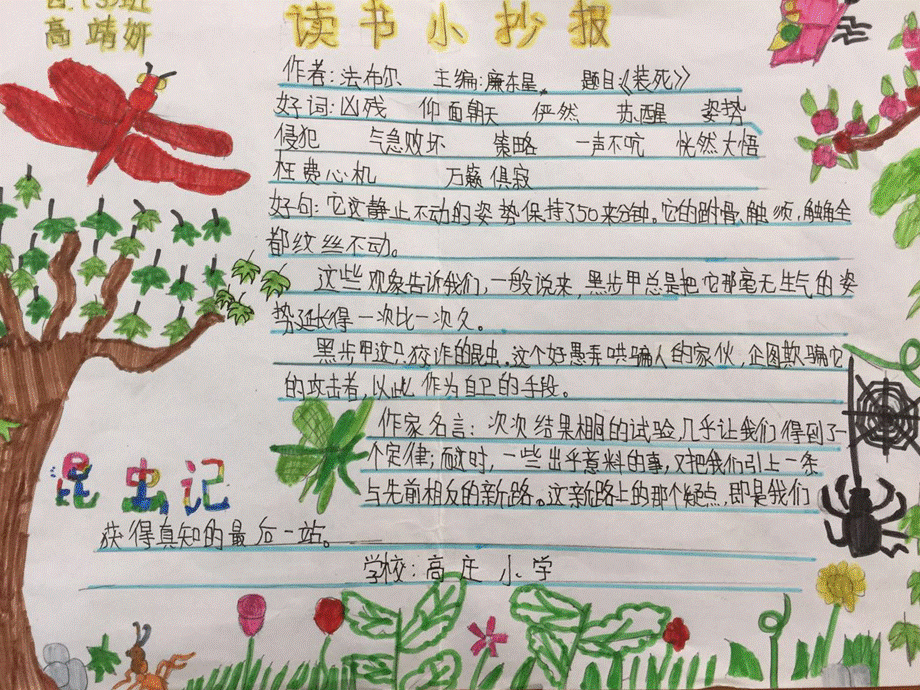 读书小抄报
高靖妍
作者:法布尔 主编:廉东星 题目《装死》
好词:凶残 仰面朝天 俨然 苏醒 姿势
侵犯 气急败坏 策略 一声不吭 恍然大悟
枉费心机 万籁俱寂
好句:它文静止不动的姿势保持了50来分钟。它的跗骨,触须,触角全
都纹丝不动。
这些现象告诉我们,一般说来,黑步甲总是把它那毫无生气的姿
势延长得一次比一次久。
黑步甲这只狡诈的昆虫。这个好愚弄哄骗人的家伙,企图欺骗它
的攻击者,以此作为自卫的手段。
作家名言:次次结果相同的试验几乎让我们得到了一
个定律;而这时,一些出乎意料的事,又把我们引上一条
与先前相反的新路。这新路上的那个疑点,即是我们
获得真知的最后一站。
昆虫记
学校:高庄小学